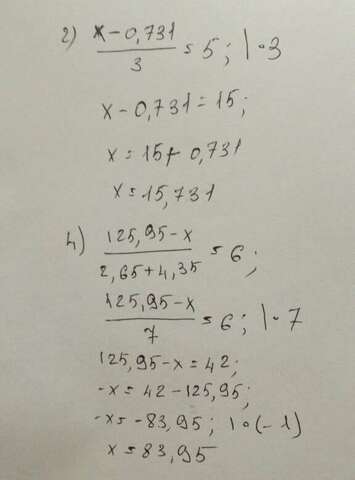 2) x-0,731/3 = 5; | · 3
x-0,731=15;
x=15+0,731
x=15,731
4) 125,95-x/2,65+4,35 = 6;
125,95-x/7 = 6; | · 7
125,95-x=42;
-x=42-125,95;
-x=-83,95; | · (-1)
x=83,95